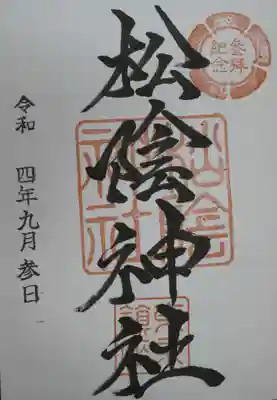 参拝
紀念
松陰神社
松陰
神社
令和 四年九月参日